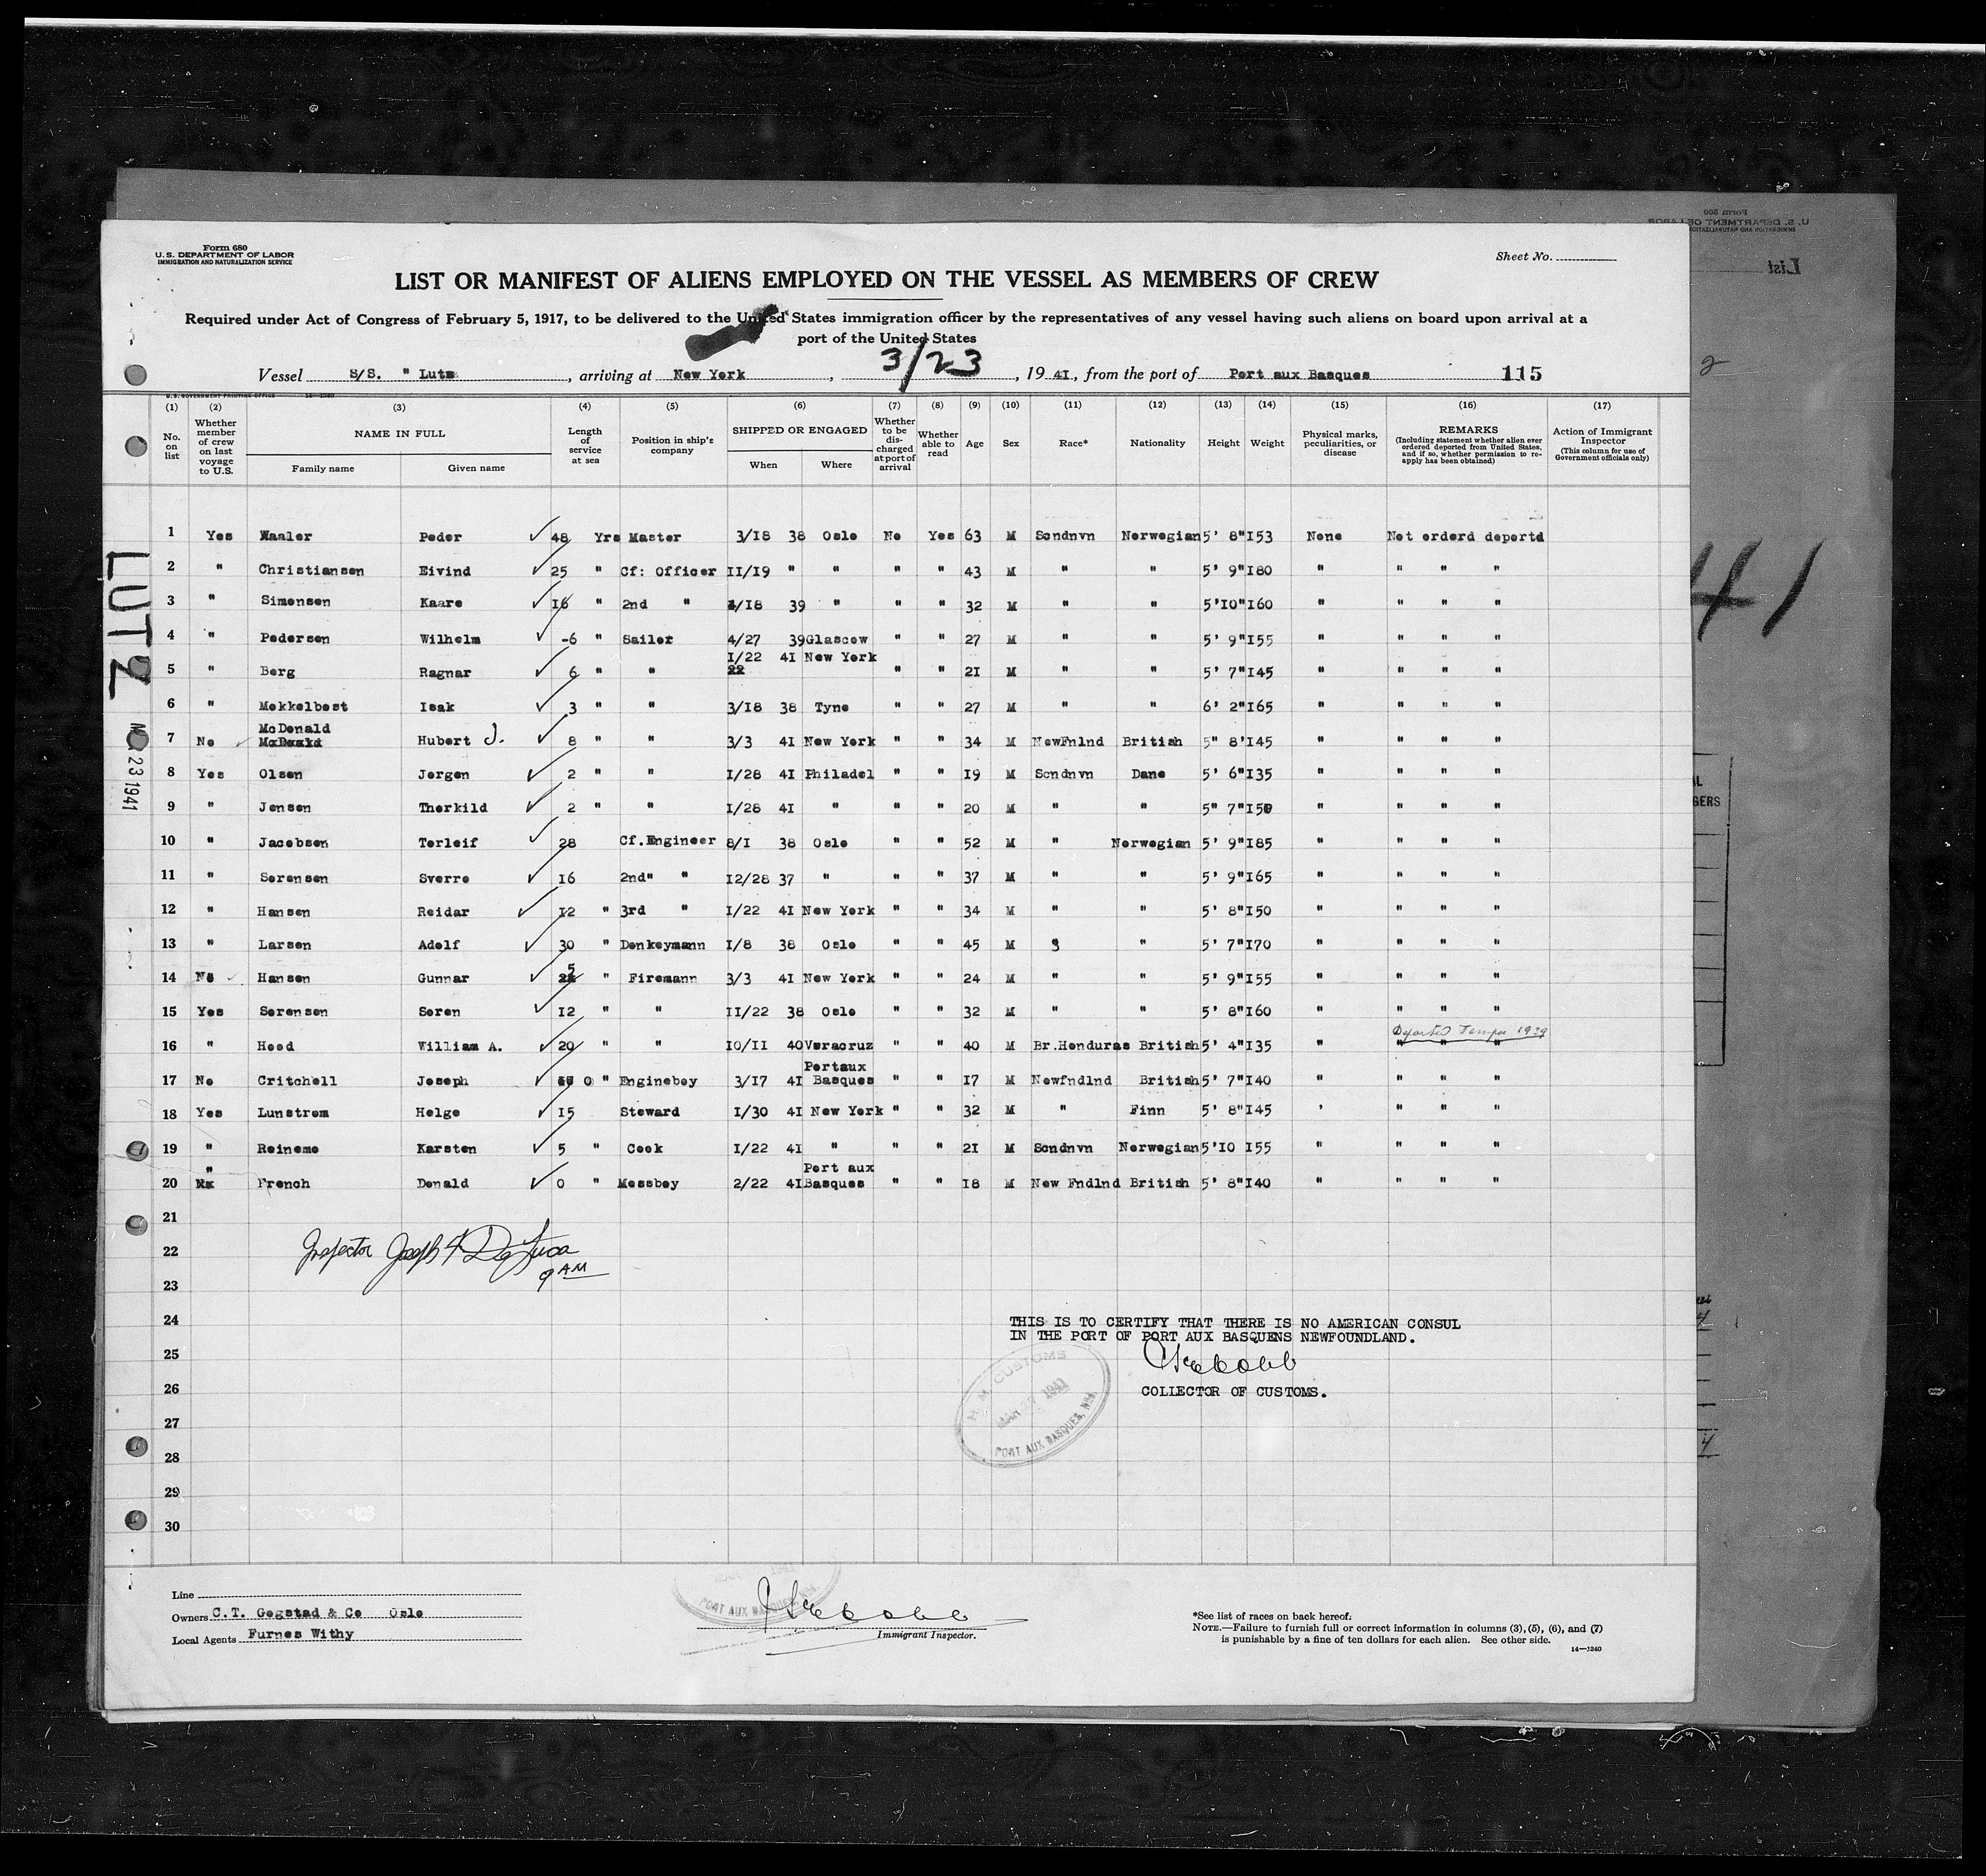 Form 680
U. S. DEPARTMENT OF LABOR
IMMIGRATION AND NATURALIZATION SERVICE
Sheet No.
LIST OR MANIFEST OF ALIENS EMPLOYED ON THE VESSEL AS MEMBERS OF CREW
Required under Act of Congress of February 5, 1917, to be delivered to the United States immigration officer by the representatives of any vessel having such aliens on board upon arrival at a
port of the United States
Vessel S/S. " Lutz , arriving at New York , 3/23 , 19 41, from the port of Port aux Basques 115
U. S. GOVERNMENT PRINTING OFFICE 14—1240
(1) (2) (3) (4) (5) (6) (7) (8) (9) (10) (11) (12) (13) (14) (15) (16) (17)
No. on list
Whether member of crew on last voyage to U.S.
NAME IN FULL
Family name Given name
Length of service at sea
Position in ship's company
SHIPPED OR ENGAGED
When Where
Whether to be discharged at port of arrival
Whether able to read
Age Sex Race* Nationality Height Weight
Physical marks, peculiarities, or disease
REMARKS
(Including statement whether alien ever ordered deported from United States, and if so, whether permission to reapply has been obtained)
Action of Immigrant Inspector
(This column for use of Government officials only)
1 Yes Waaler Peder 48 Yrs Master 3/18 38 Oslo No Yes 63 M Scndnvn Norwegian 5' 8" 153 None Not orderd deportd
2 " Christiansen Eivind 25 " Cf: Officer 11/19 " " " " 43 M " " 5' 9" 180 " " " "
3 " Simensen Kaare 16 " 2nd " 4/18 39 " " " 32 M " " 5'10" 160 " " " "
4 " Pedersen Wilhelm -6 " Sailor 4/27 39 Glascow " " 27 M " " 5' 9" 155 " " " "
5 " Berg Ragnar 6 " " 1/22 41 New York " " 21 M " " 5' 7" 145 " " " "
22
6 " Mekkelbost Isak 3 " " 3/18 38 Tyne " " 27 M " " 6' 2" 165 " " " "
McDonald
7 No Hubert J. 8 " " 3/3 41 New York " " 34 M NewFnlnd British 5" 8' 145 " " " "
8 Yes Olsen Jorgen 2 " " 1/28 41 Philadel " " 19 M Scndnvn Dane 5' 6" 135 " " " "
9 " Jensen Thorkild 2 " " 1/28 41 " " " 20 M " " 5" 7" 150 " " " "
10 " Jacobsen Torleif 28 Cf.Engineer 8/1 38 Oslo " " 52 M " Norwegian 5' 9" 185 " " " "
11 " Sorensen Sverre 16 2nd" " 12/28 37 " " " 37 M " " 5' 9" 165 " " " "
12 " Hansen Reidar 12 " 3rd " 1/22 41 New York " " 34 M " " 5' 8" 150 " " " "
13 " Larsen Adolf 30 " Donkeymann 1/8 38 Oslo " " 45 M " " 5' 7" 170 " " " "
14 No Hansen Gunnar 5 " Firemann 3/3 41 New York " " 24 M " " 5' 9" 155 " " " "
15 Yes Sorensen Soren 12 " " 11/22 38 Oslo " " 32 M " " 5' 8" 160 " " " "
Deported Tampa 1939
16 " Hood William A. 20 " " 10/11 40 Veracruz " " 40 M Br.Honduras British 5' 4" 135 " " " "
Portaux
17 No Critchell Joseph 0 " Engineboy 3/17 41 Basques " " 17 M Newfndlnd British 5' 7" 140 " " " "
18 Yes Lunstrom Helge 15 Steward 1/30 41 New York " " 32 M " Finn 5' 8" 145 ' " " "
19 " Reinemo Karsten 5 " Cook 1/22 41 " " " 21 M Scndnvn Norwegian 5'10 155 " " " "
" Port aux
20 French Donald 0 " Messboy 2/22 41 Basques " " 18 M New Fndlnd British 5' 8" 140 " " " "
21
22 Inspector Joseph F DeLuca
9 AM
23
24
THIS IS TO CERTIFY THAT THERE IS NO AMERICAN CONSUL
IN THE PORT OF PORT AUX BASQUENS NEWFOUNDLAND.
25
COLLECTOR OF CUSTOMS.
26
27
28
29
30
H. M. CUSTOMS
MAR 1941
PORT AUX BASQUES, Nfld.
Line
Owners C.T. Gogstad & Co Oslo
Local Agents Furnes Withy
1941
PORT AUX BASQUES, Nfld.
Immigrant Inspector.
*See list of races on back hereof.
NOTE.—Failure to furnish full or correct information in columns (3), (5), (6), and (7)
is punishable by a fine of ten dollars for each alien. See other side.
14—1240
LUTZ
23 1941
Form 500
U. S. DEPARTMENT OF LABOR
List
2
41